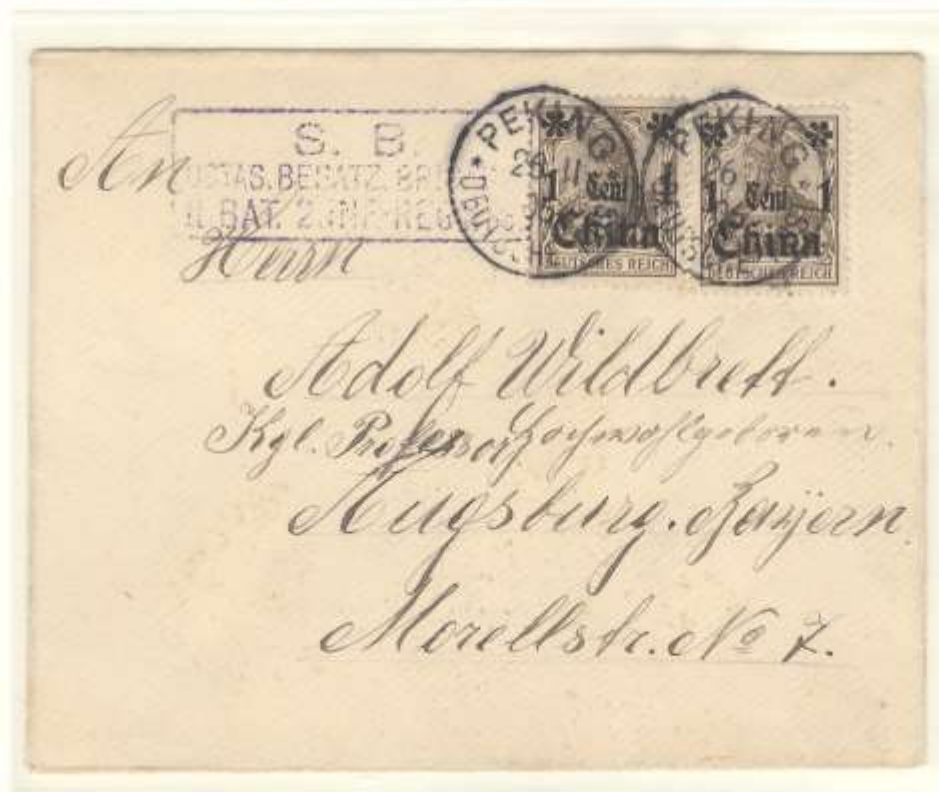 An
S. B.
OSTAS. BESATZ. BRI
II. BAT. 2. INF. REG
Herrn
PEKING
DEUTSCHE
26 11
1 Cent 1
China
DEUTSCHES REICH
PEKING
26
1 Cent 1
China
DEUTSCHES REICH
Adolf Wildbrett.
Kgl. Professor Hochwohlgeboren.
Augsburg. Bayern
Morellstr. No 7.